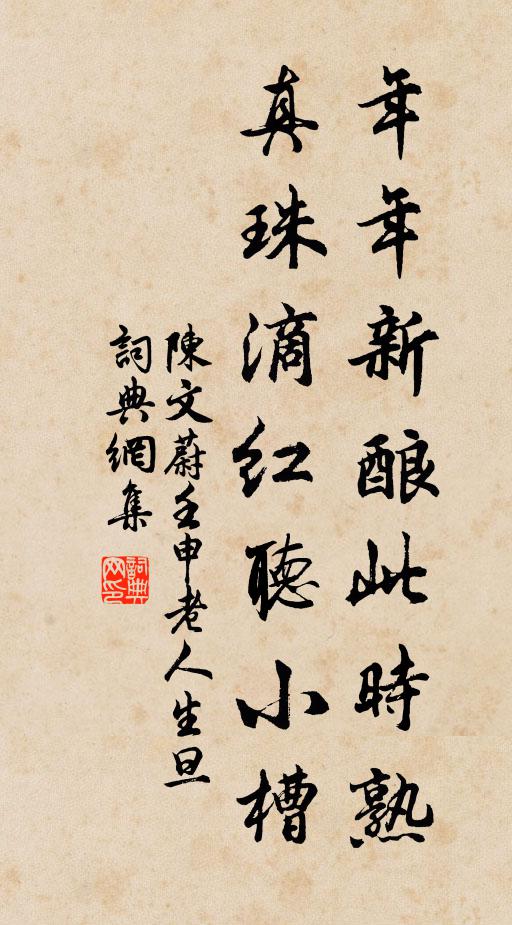 年年新酿此時熟
真珠滴红聽小槽
陳文蔚壬申老人生旦
詞典網集
詞典網印